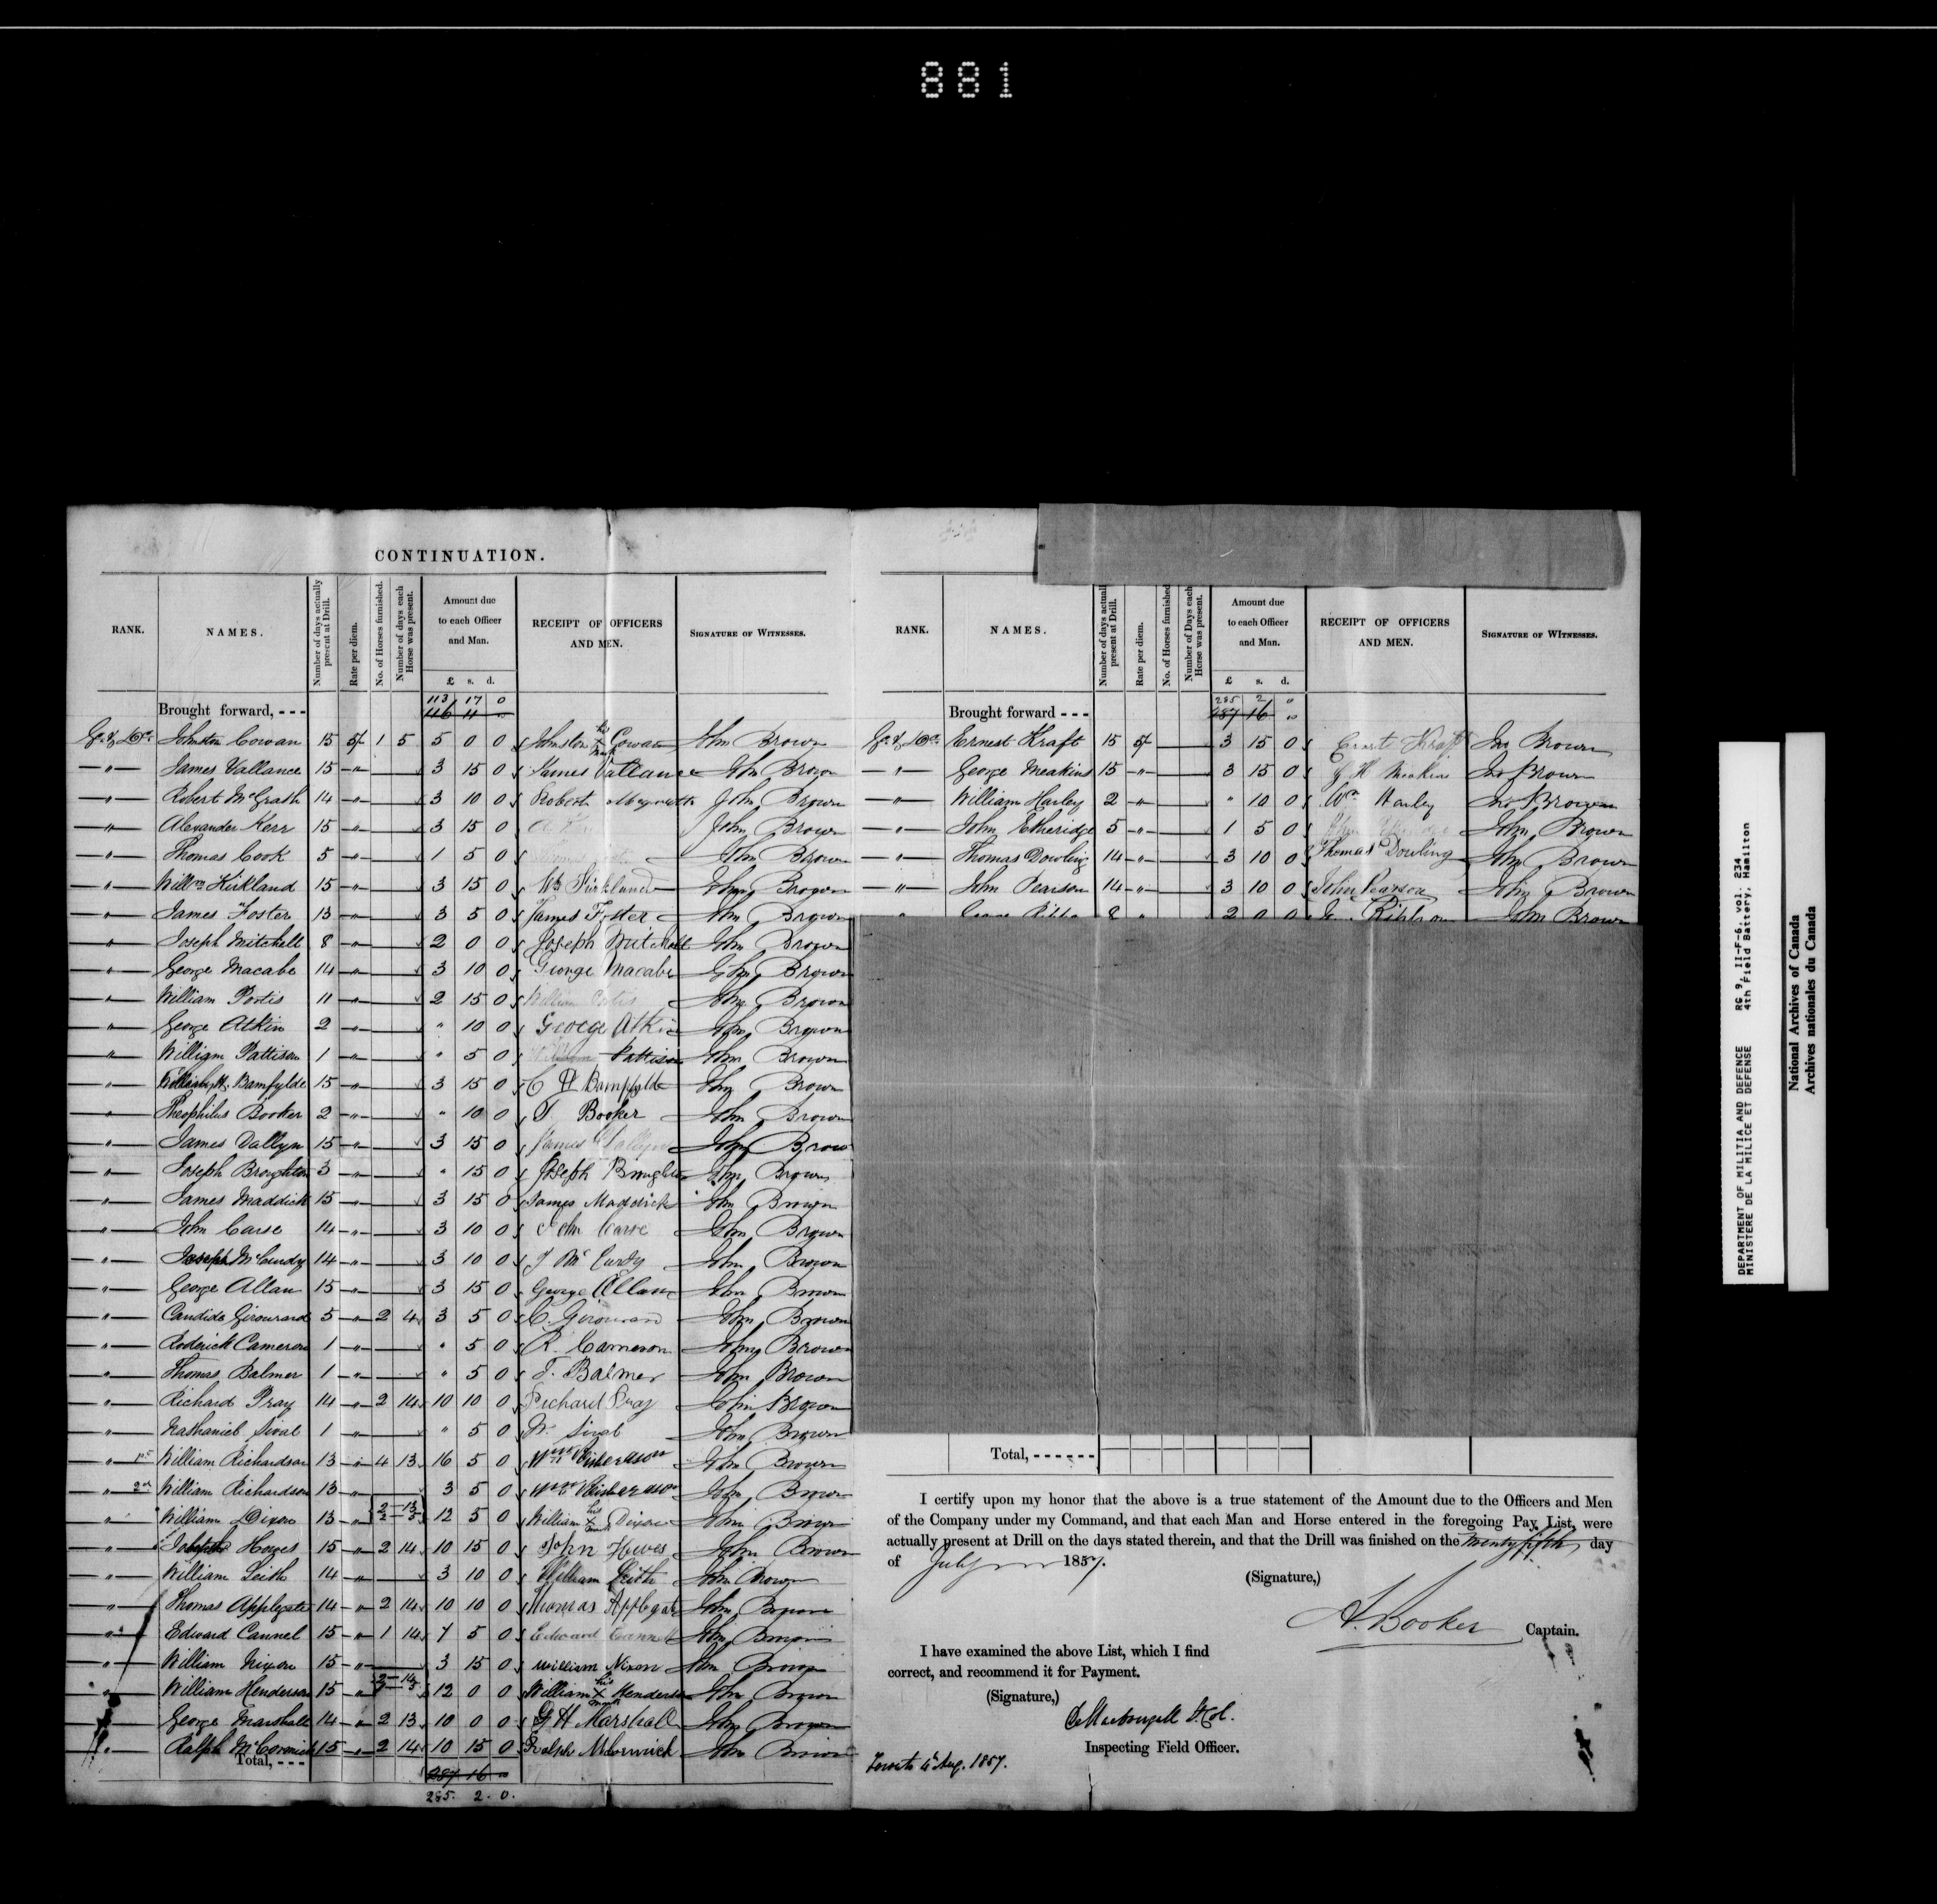 881
CONTINUATION.
RANK. NAMES. Number of days actually present at Drill. Rate per diem. No. of Horses furnished. Number of days each Horse was present. Amount due to each Officer and Man. £ s. d. RECEIPT OF OFFICERS AND MEN. SIGNATURE OF WITNESSES.
113 17 0
Brought forward, - - - 116 11 "
Johnston Cowan 15 5/- 1 5 5 0 0 Johnston his X mark Cowan John Brown
" James Vallance 15 " 3 15 0 James Vallance John Brown
" Robert McGrath 14 " 3 10 0 Robert John Brown
" Alexander Kerr 15 " 3 15 0 John Brown
" Thomas Cook 5 " 1 5 0 John Brown
" Willm Kirkland 15 " 3 15 0 Wm Kirkland John Brown
" James Foster 13 " 3 5 0 James Foster John Brown
" Joseph Mitchell 8 " 2 0 0 Joseph Mitchell John Brown
" George Macabe 14 " 3 10 0 George Macabe John Brown
" William Postis 11 " 2 15 0 William John Brown
" George Atkin 2 " " 10 0 George Atkin John Brown
" William Pattison 1 " " 5 0 William Pattison John Brown
" Bamfylde 15 " 3 15 0 Bampfylde John Brown
" Theophilus Booker 2 " " 10 0 T. Booker John Brown
" James Dallyn 15 " 3 15 0 James Dallyn John Brown
" Joseph Broughton 3 " " 15 0 Joseph Broughton John Brown
" James Maddick 15 " 3 15 0 James Maddick John Brown
" John Carse 14 " 3 10 0 John Carse John Brown
" Joseph McCurdy 14 " 3 10 0 J McCurdy John Brown
" George Allan 15 " 3 15 0 George Allan John Brown
" Candide Girouard 5 " 2 4 3 5 0 C. Girouard John Brown
" Roderick Cameron 1 " " 5 0 R. Cameron John Brown
" Thomas Balmer 1 " " 5 0 T. Balmer John Brown
" Richard Pray 14 " 2 14 10 10 0 Richard Pray John Brown
" Nathaniel Sival 1 " " 5 0 N. Sival John Brown
" 1st William Richardson 13 " 4 13 16 5 0 Wm Richardson John Brown
" 2nd William Richardson 13 " 3 5 0 Wm Richardson John Brown
" William Dixon 13 " 2 13 2 3 12 5 0 William his X mark Dixon John Brown
" Howes 15 " 2 14 10 15 0 John Howes John Brown
" William Leith 14 " 3 10 0 William Leith John Brown
" Thomas Applegate 14 " 2 14 10 10 0 Thomas Applegate John Brown
" Edward Cannel 15 " 1 14 7 5 0 Edward Cannel John Brown
" William Nixon 15 " 3 15 0 William Nixon John Brown
" William Henderson 15 " 12 0 0 William his X mark Henderson John Brown
" George Marshall 14 " 2 13 10 0 0 G H Marshall John Brown
" Ralph McCormick 15 " 2 14 10 15 0 Ralph McCormick John Brown
Total, - - - 287 16 "
285. 2. 0.
RANK. NAMES. Number of days actually present at Drill. Rate per diem. No. of Horses furnished Number of Days each Horse was present. Amount due to each Officer and Man. £ s. d. RECEIPT OF OFFICERS AND MEN. SIGNATURE OF WITNESSES.
285 2 "
Brought forward - - - 287 16 "
Ernest Kraft 15 5/- 3 15 0 Kraft Jno Brown
" George Meakins 15 " 3 15 0 G H Meakins Jno Brown
" William Harley 2 " " 10 0 Wm Harley Jno Brown
" John Etheridge 5 " 1 5 0 John Brown
" Thomas Dowling 14 " 3 10 0 Thomas Dowling John Brown
" John Pearson 14 " 3 10 0 John Pearson John Brown
" 8 " 2 0 0 John Brown
Total, - - - - - -
I certify upon my honor that the above is a true statement of the Amount due to the Officers and Men
of the Company under my Command, and that each Man and Horse entered in the foregoing Pay List, were
actually present at Drill on the days stated therein, and that the Drill was finished on the twenty fifth day
of July 1857.
(Signature,)
A. Booker Captain.
I have examined the above List, which I find
correct, and recommend it for Payment.
(Signature,)
Inspecting Field Officer.
Toronto 4 Aug. 1857.
DEPARTMENT OF MILITIA AND DEFENCE RG 9, II-F-6, vol. 234
MINISTERE DE LA MILICE ET DEFENSE 4th Field Battery, Hamilton
National Archives of Canada
Archives nationales du Canada